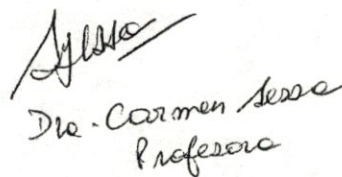 Dra. Carmen Sessa
Profesora